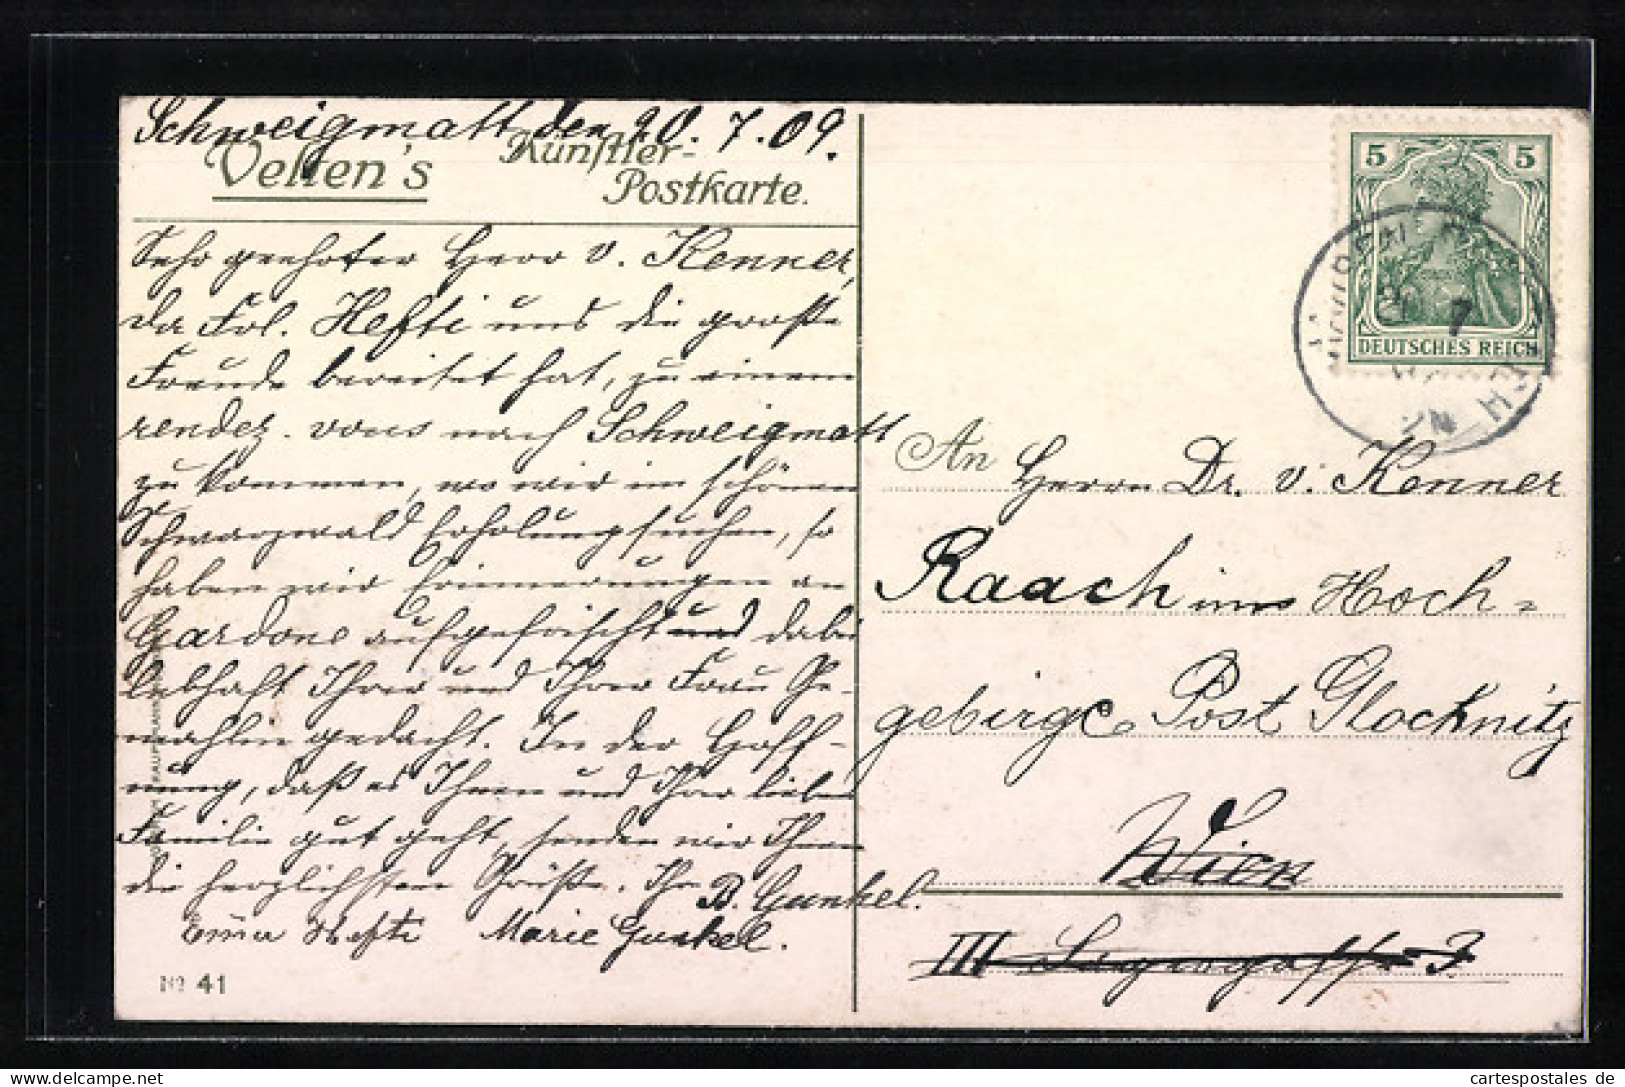 Schweigmatt den 20. 7. 09.
Velten's Künstler-
Postkarte.
Sehr geehrter Herr v. Kenner,
da Frl. Hefti uns die große
Freude bereitet hat, zu einem
rendez-vous nach Schweigmatt
zu kommen, wo wir im schönen
Schwarzwald Erholung suchen, so
haben wir Erinnerungen an
Gardone aufgefrischt und dabei
lebhaft Ihrer und Ihrer Frau Ge-
mahlin gedacht. In der Hoff-
nung, daß es Ihnen und Ihrer lieben
Familie gut geht, senden wir Ihnen
die herzlichsten Grüße. Ihr B. Gunkel.
Hefti Marie Gunkel.
No 41
5 5
DEUTSCHES REICH
7
An Herrn Dr. v. Kenner
Raach im Hoch-
gebirge Post Glocknitz
Wien
III
cartespostales de